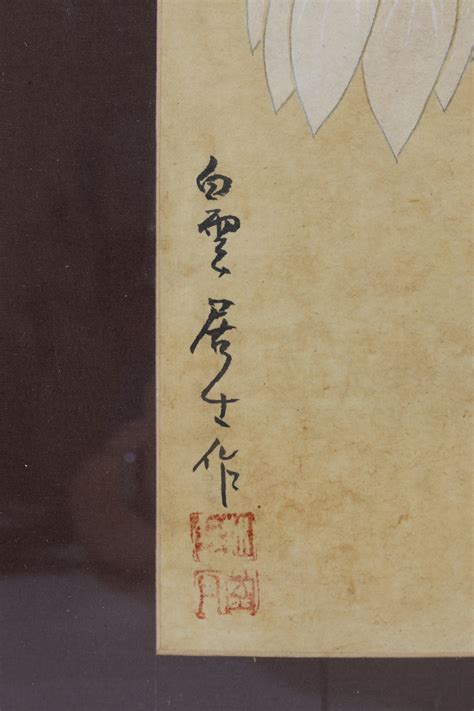 白雲居士作